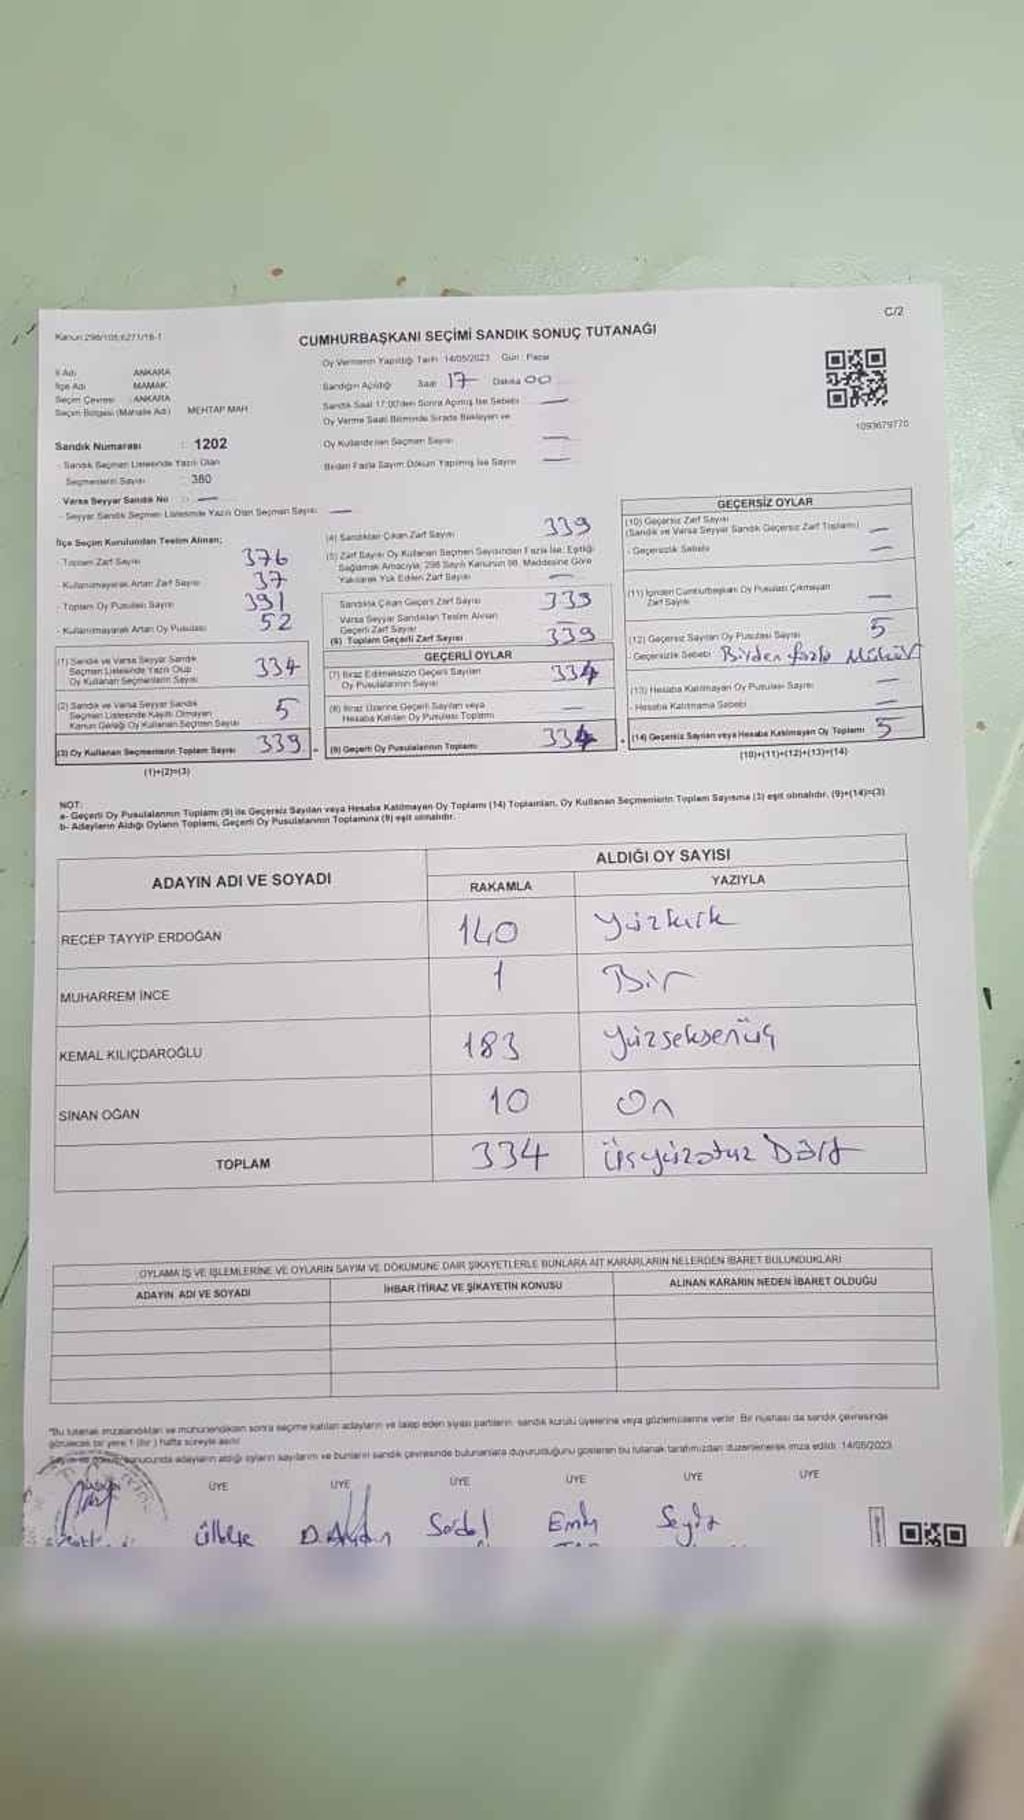 C/2
Kanun 298/105,6271/16-1
CUMHURBAŞKANI SEÇİMİ SANDIK SONUÇ TUTANAĞI
İl Adı ANKARA
İlçe Adı MAMAK
Seçim Çevresi ANKARA
Seçim Bölgesi (Mahalle Adı) MEHTAP MAH.
Oy Vermenin Yapıldığı Tarih 14/05/2023 Gün: Pazar
Sandığın Açıldığı Saat 17 Dakika 00
Sandık Saat 17:00'den Sonra Açılmış İse Sebebi —
Oy Verme Saati Bitiminde Sırada Bekleyen ve
Oy Kullandırılan Seçmen Sayısı —
Birden Fazla Sayım Döküm Yapılmış İse Sayısı —
1093679770
Sandık Numarası : 1202
- Sandık Seçmen Listesinde Yazılı Olan
Seçmenlerin Sayısı : 380
Varsa Seyyar Sandık No : —
- Seyyar Sandık Seçmen Listesinde Yazılı Olan Seçmen Sayısı —
İlçe Seçim Kurulundan Teslim Alınan;
- Toplam Zarf Sayısı 376
- Kullanılmayarak Artan Zarf Sayısı 37
- Toplam Oy Pusulası Sayısı 391
- Kullanılmayarak Artan Oy Pusulası 52
(1) Sandık ve Varsa Seyyar Sandık
Seçmen Listesinde Yazılı Olup
Oy Kullanan Seçmenlerin Sayısı 334
(2) Sandık ve Varsa Seyyar Sandık
Seçmen Listesinde Kayıtlı Olmayan
Kanun Gereği Oy Kullanan Seçmen Sayısı 5
(3) Oy Kullanan Seçmenlerin Toplam Sayısı 339
(1)+(2)=(3)
(4) Sandıktan Çıkan Zarf Sayısı 339
(5) Zarf Sayısı Oy Kullanan Seçmen Sayısından Fazla İse; Eşitliği
Sağlamak Amacıyla, 298 Sayılı Kanunun 98. Maddesine Göre
Yakılarak Yok Edilen Zarf Sayısı —
Sandıkta Çıkan Geçerli Zarf Sayısı 339
Varsa Seyyar Sandıktan Teslim Alınan
Geçerli Zarf Sayısı
(6) Toplam Geçerli Zarf Sayısı 339
GEÇERLİ OYLAR
(7) İtiraz Edilmeksizin Geçerli Sayılan
Oy Pusulalarının Sayısı 334
(8) İtiraz Üzerine Geçerli Sayılan veya
Hesaba Katılan Oy Pusulası Toplamı —
(9) Geçerli Oy Pusulalarının Toplamı 334
GEÇERSİZ OYLAR
(10) Geçersiz Zarf Sayısı
(Sandık ve Varsa Seyyar Sandık Geçersiz Zarf Toplamı) —
- Geçersizlik Sebebi —
(11) İçinden Cumhurbaşkanı Oy Pusulası Çıkmayan
Zarf Sayısı —
(12) Geçersiz Sayılan Oy Pusulası Sayısı 5
- Geçersizlik Sebebi Birden fazla Mühür
(13) Hesaba Katılmayan Oy Pusulası Sayısı —
- Hesaba Katılmama Sebebi —
(14) Geçersiz Sayılan veya Hesaba Katılmayan Oy Toplamı 5
(10)+(11)+(12)+(13)=(14)
NOT:
a- Geçerli Oy Pusulalarının Toplamı (9) ile Geçersiz Sayılan veya Hesaba Katılmayan Oy Toplamı (14) Toplamları, Oy Kullanan Seçmenlerin Toplam Sayısına (3) eşit olmalıdır. (9)+(14)=(3)
b- Adayların Aldığı Oyların Toplamı, Geçerli Oy Pusulalarının Toplamına (9) eşit olmalıdır.
ADAYIN ADI VE SOYADI
ALDIĞI OY SAYISI
RAKAMLA YAZIYLA
RECEP TAYYİP ERDOĞAN 140 Yüzkırk
MUHARREM İNCE 1 Bir
KEMAL KILIÇDAROĞLU 183 Yüzseksenüç
SİNAN OĞAN 10 On
TOPLAM 334 üçyüzotuz Dört
OYLAMA İŞ VE İŞLEMLERİNE VE OYLARIN SAYIM VE DÖKÜMÜNE DAİR ŞİKAYETLERLE BUNLARA AİT KARARLARIN NELERDEN İBARET BULUNDUKLARI
ADAYIN ADI VE SOYADI İHBAR İTİRAZ VE ŞİKAYETİN KONUSU ALINAN KARARIN NEDEN İBARET OLDUĞU
*Bu tutanak imzalandıktan ve mühürlendikten sonra seçime katılan adayların ve talep eden siyasi partilerin sandık kurulu üyelerine veya gözlemcilerine verilir. Bir nüshası da sandık çevresinde
görülecek bir yere 1 (bir) hafta süreyle asılır.
sonucunda adayların aldığı oyların sayılarını ve bunların sandık çevresinde bulunanlara duyurulduğunu gösteren bu tutanak tarafımızdan düzenlenerek imza edildi. 14/05/2023
ÜYE ÜYE ÜYE ÜYE ÜYE ÜYE
D. Aydın